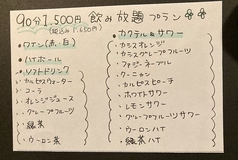 90分1,500円 飲み放題プラン
(税込み1,650円)
・ワイン(赤、白)
・ハイボール
・ソフトドリンク
・カルピスウォーター
・コーラ
・オレンジジュース
・グレープフルーツ
・緑茶
・ウーロン茶
・カクテル&サワー
・カシスオレンジ
・カシスグレープフルーツ
・ファジーネーブル
・クーニャン
・カルピスピーチ
・ホワイトサワー
・レモンサワー
・グレープフルーツサワー
・ウーロンハイ
・緑茶ハイ